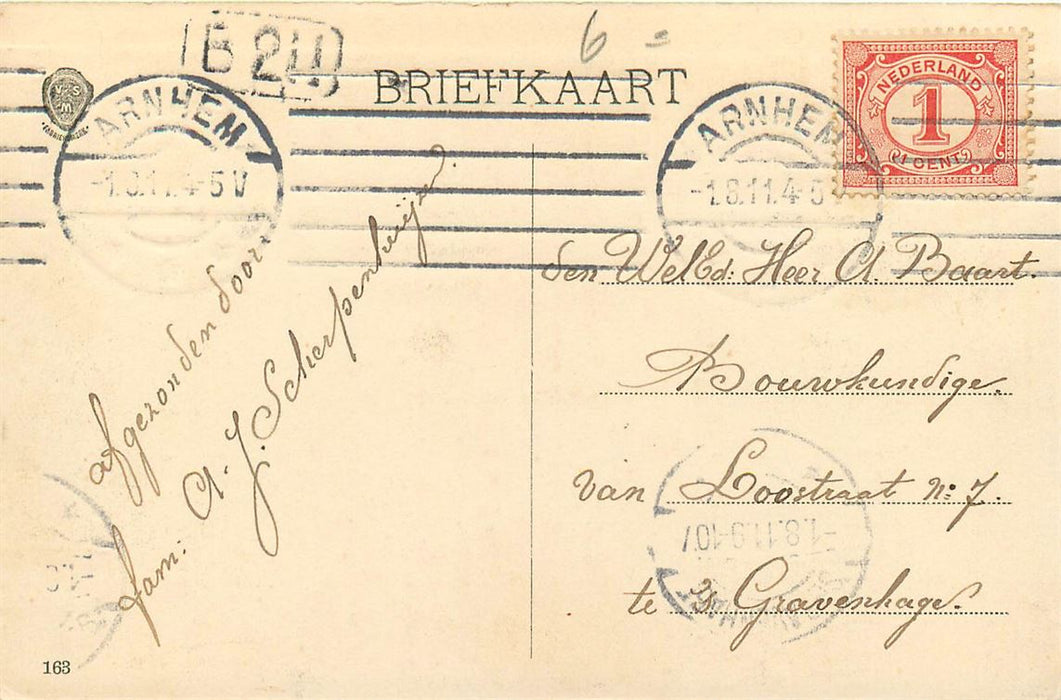 6 =
BRIEFKAART
V.S
M
ARNHEM
-1.8.11.4-5V
ARNHEM
-1.8.11.4-5
NEDERLAND
1
(1 CENT)
den WelEd: Heer A. Baart.
Bouwkundige.
van Loostraat No: 7.
te 's Gravenhage.
afgezonden door:
fam: A. J. Scherpenhuijzen.
-1.8.11.9-10
163